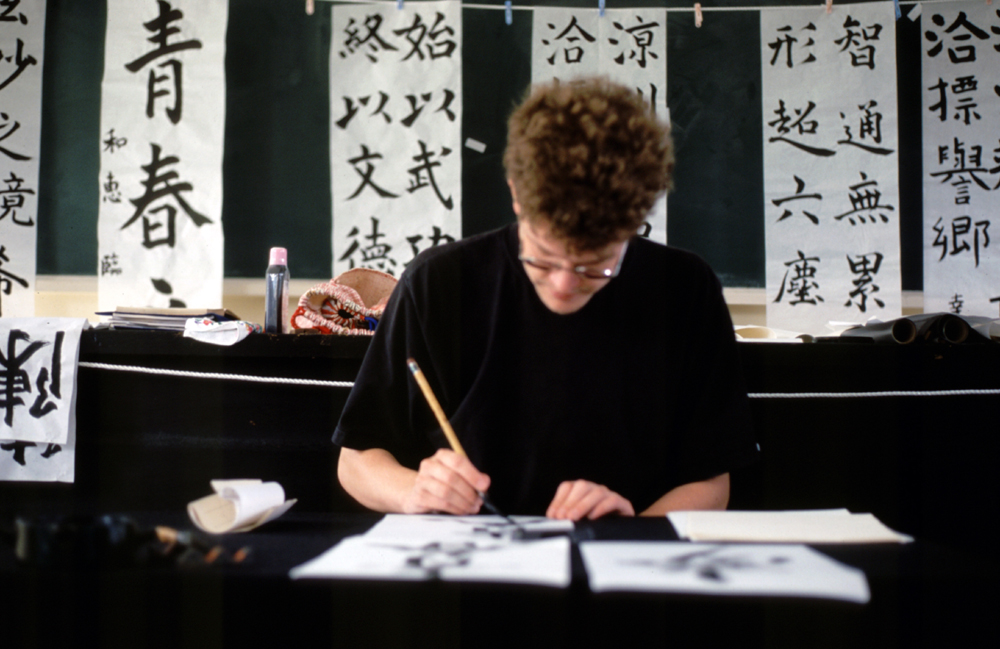 妙之
青春
和恵臨
始以武功
終以文德
涼
洽
智通無累
形超六塵
洽標譽鄉
幸